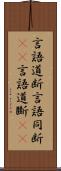 言語道断言語同断
言語道斷